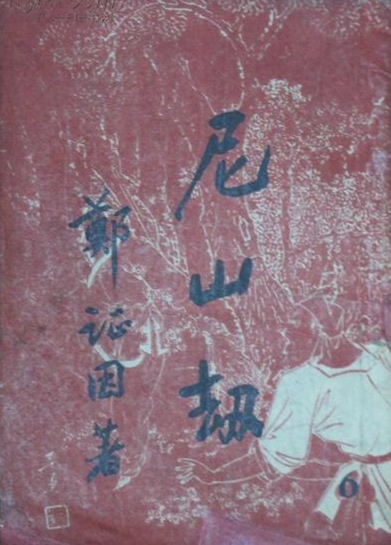 尼山劫
鄭証因著
6